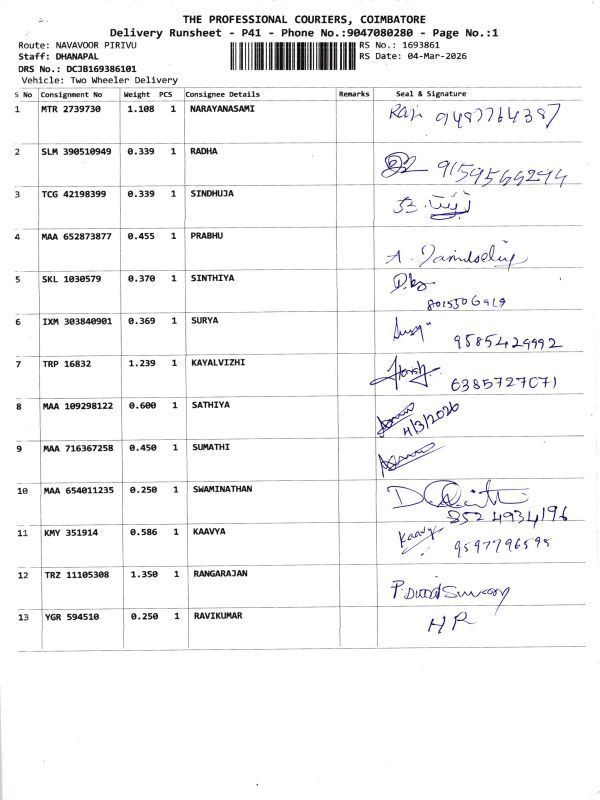 THE PROFESSIONAL COURIERS, COIMBATORE
Delivery Runsheet - P41 - Phone No.:9047080280 - Page No.:1
Route: NAVAVOOR PIRIVU RS No.: 1693861
Staff: DHANAPAL RS Date: 04-Mar-2026
DRS No.: DCJB169386101
Vehicle: Two Wheeler Delivery
S No Consignment No Weight PCS Consignee Details Remarks Seal & Signature
1 MTR 2739730 1.108 1 NARAYANASAMI 9487764387
2 SLM 390510949 0.339 1 RADHA
3 TCG 42198399 0.339 1 SINDHUJA
4 MAA 652873877 0.455 1 PRABHU
5 SKL 1030579 0.370 1 SINTHIYA
8015506919
6 IXM 303840901 0.369 1 SURYA
9585429992
7 TRP 16832 1.239 1 KAYALVIZHI
6385727071
8 MAA 109298122 0.600 1 SATHIYA
4/3/2026
9 MAA 716367258 0.450 1 SUMATHI
10 MAA 654011235 0.250 1 SWAMINATHAN
8524934196
11 KMY 351914 0.586 1 KAAVYA Kaavya
9597796595
12 TRZ 11105308 1.350 1 RANGARAJAN
13 YGR 594510 0.250 1 RAVIKUMAR HR